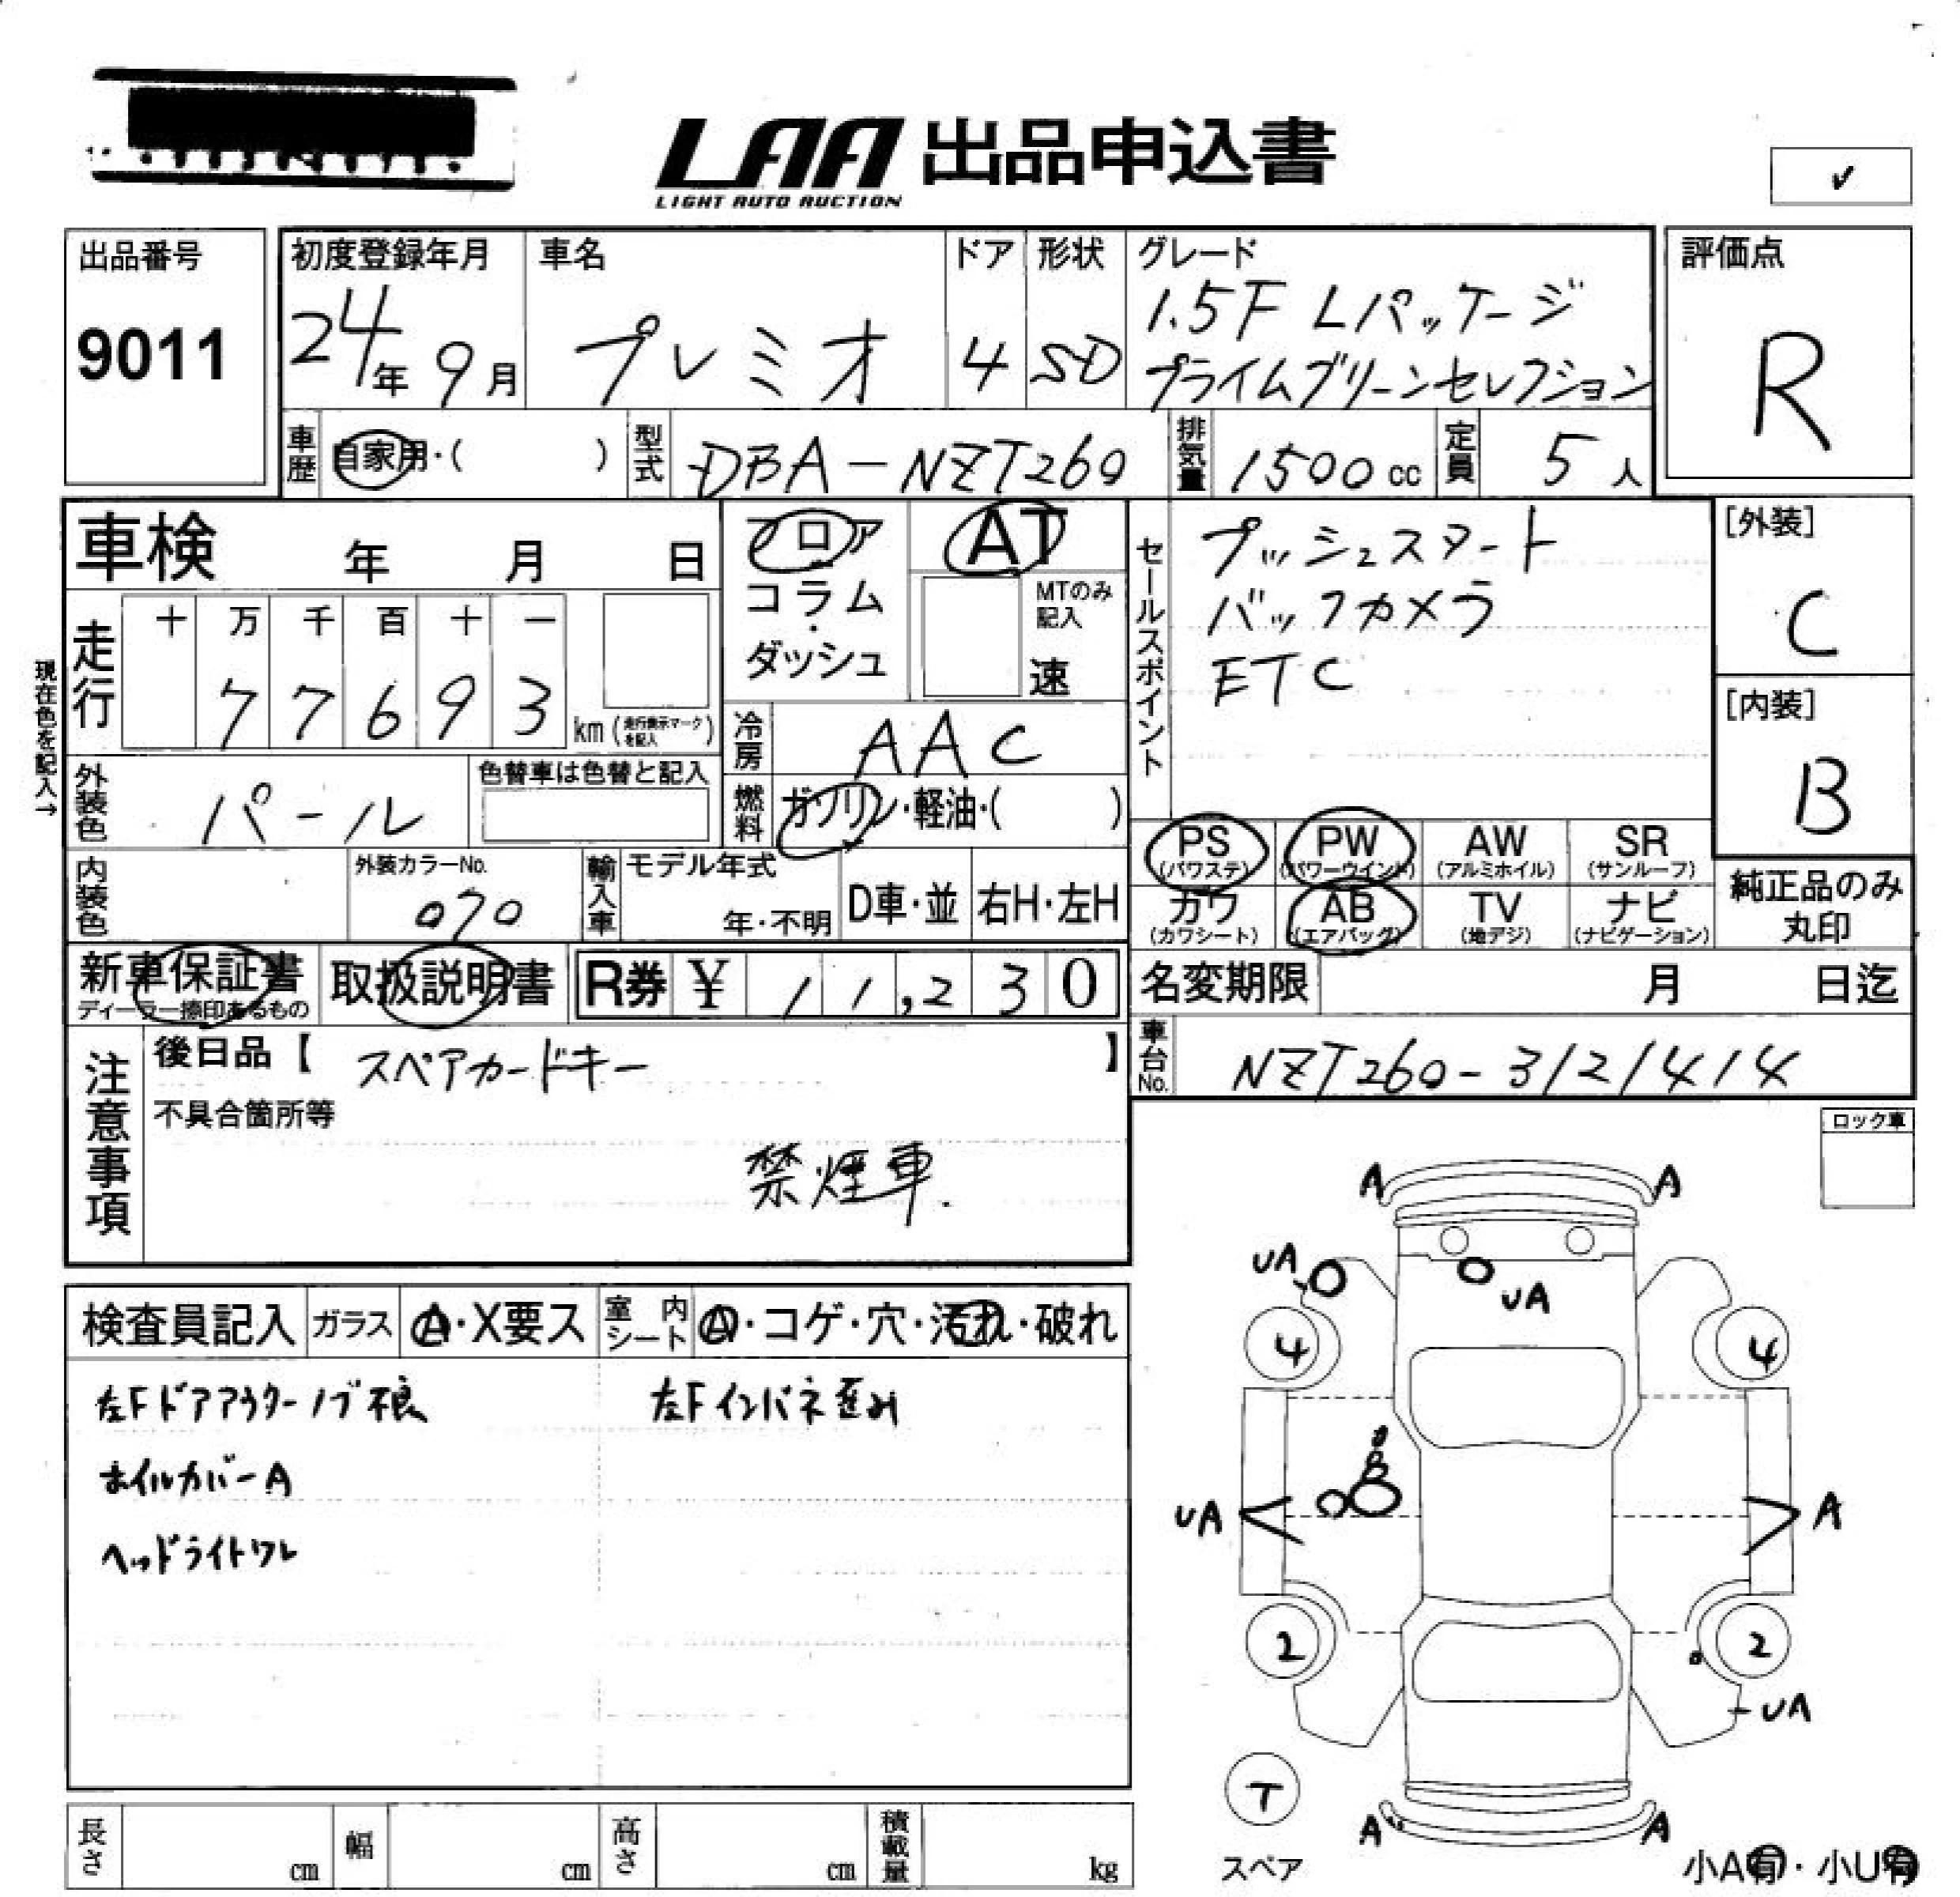 LAA 出品申込書
LIGHT AUTO AUCTION
✓
出品番号
9011
初度登録年月
24年 9月
車名
プレミオ
ドア
4
形状
SD
グレード
1.5F Lパッケージ
プライムグリーンセレクション
評価点
R
車歴
自家用・( )
型式
DBA-NZT260
排気量
1500 cc
定員
5 人
車検 年 月 日
フロア
コラム
・
ダッシュ
AT
MTのみ
記入
速
セールスポイント
プッシュスタート
バックカメラ
ETC
[外装]
C
[内装]
B
現在色を記入→
走行
十 万 千 百 十 一
7 7 6 9 3
km (走行表示マークを記入)
冷房
AAC
外装色
パール
色替車は色替と記入
燃料
ガソリン・軽油・( )
PS
(パワステ)
PW
(パワーウインド)
AW
(アルミホイル)
SR
(サンルーフ)
内装色
外装カラーNo.
070
輸入車
モデル年式
年・不明
D車・並
右H・左H
カワ
(カワシート)
AB
(エアバッグ)
TV
(地デジ)
ナビ
(ナビゲーション)
純正品のみ
丸印
新車保証書
ディーラー捺印あるもの
取扱説明書
R券 ¥ 11,230
名変期限 月 日迄
注意事項
後日品【 スペアカードキー 】
不具合箇所等
禁煙車.
車台No.
NZT260-3121414
ロック車
検査員記入
ガラス
A・X要ス
室内
シート
A・コゲ・穴・汚れ・破れ
左Fドアアウターノブ不良
左Fインパネ歪み
ホイルカバーA
ヘッドライトワレ
A A
UA
UA
4 4
UA A
2 2
UA
T
スペア
A A
小A有・小U有
長さ cm
幅 cm
高さ cm
積載量 kg